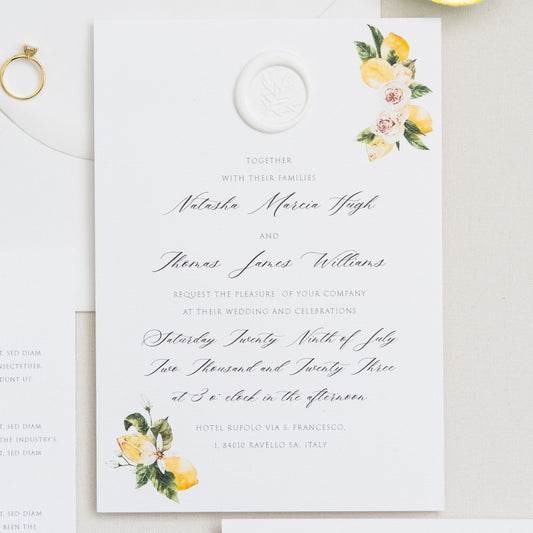 TOGETHER
WITH THEIR FAMILIES
Natasha Marcia Hugh
AND
Thomas James Williams
REQUEST THE PLEASURE OF YOUR COMPANY
AT THEIR WEDDING AND CELEBRATIONS
Saturday Twenty Ninth of July
Two Thousand and Twenty Three
at 3 o' clock in the afternoon
HOTEL RUFOLO VIA S. FRANCESCO,
1, 84010 RAVELLO SA, ITALY
T, SED DIAM
ONSECTETUER.
DUNT UT.
T, SED DIAM
THE INDUSTRY'S
T, SED DIAM
T, SED DIAM
BEEN THE